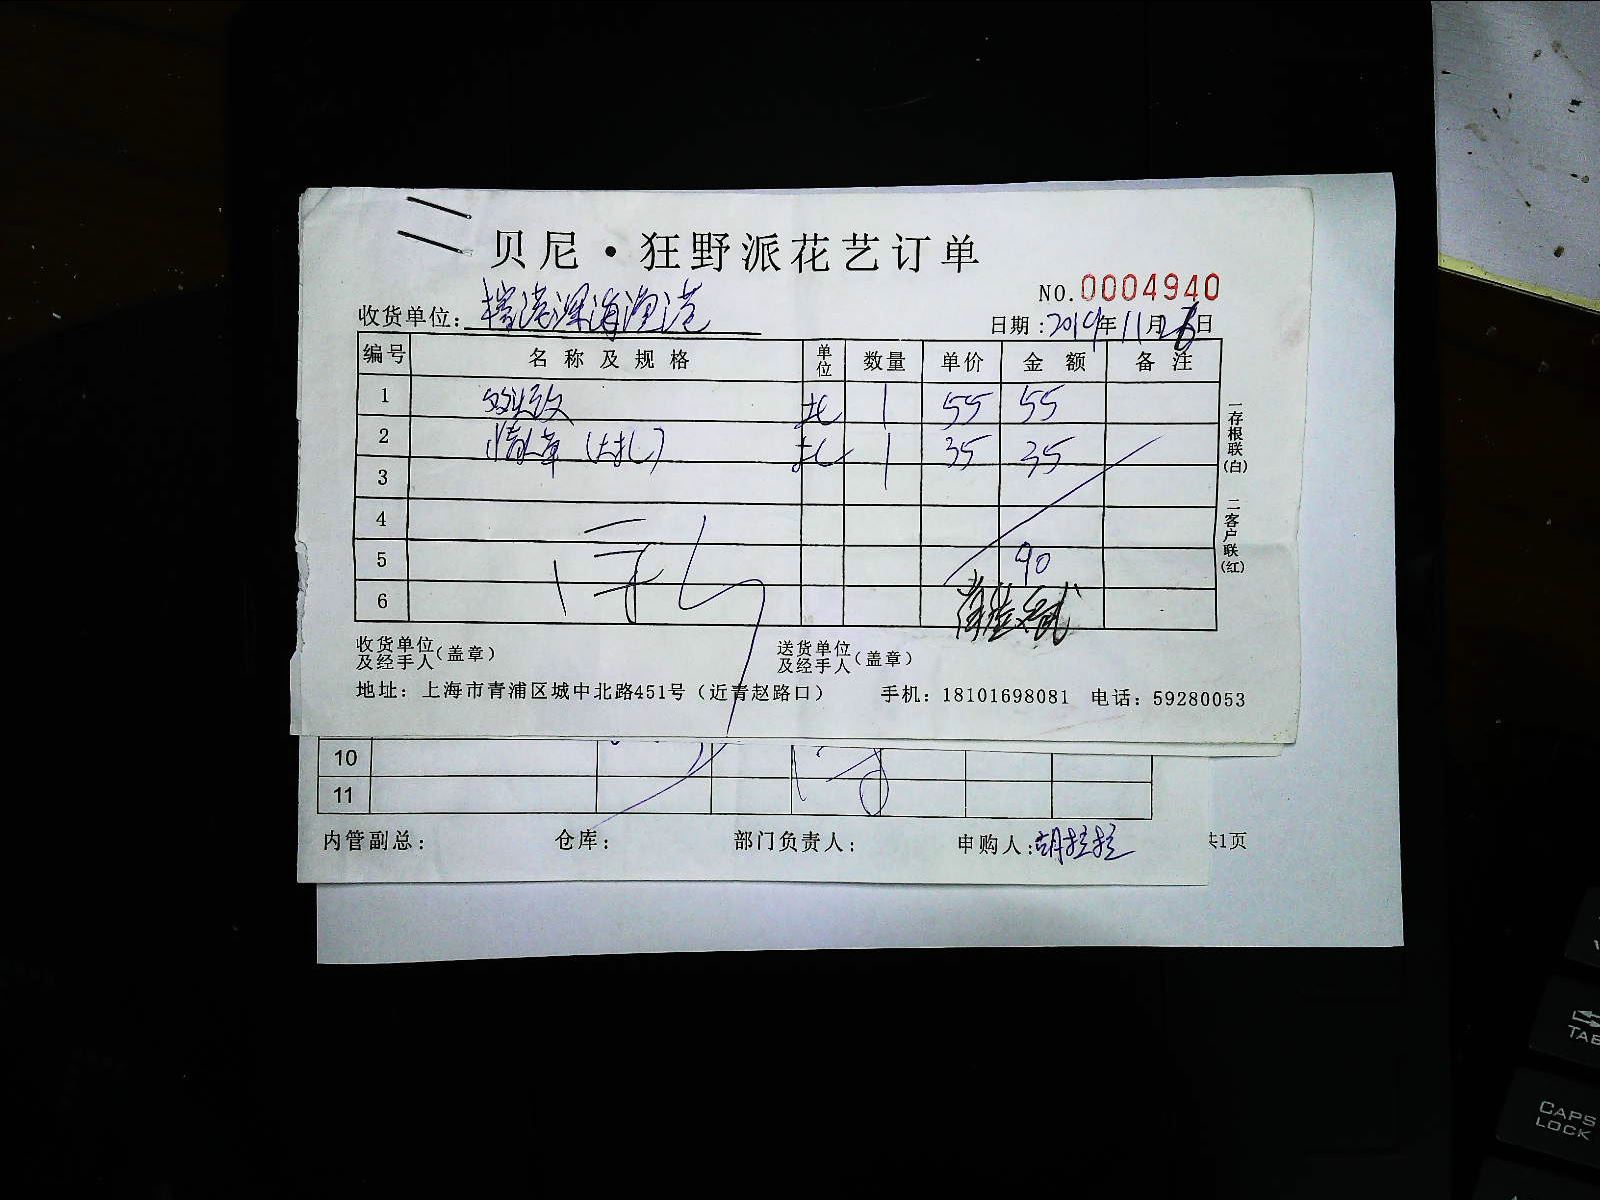 贝尼·狂野派花艺订单
NO.0004940
收货单位: 深海渔港
日期:2019年11月26日
编号 名称及规格 单位 数量 单价 金额 备注
1 扎 1 55 55
2 情人草(大扎) 扎 1 35 35
3
4
5 90
6
一存根联(白) 二客户联(红)
收货单位及经手人(盖章) 送货单位及经手人(盖章)
地址: 上海市青浦区城中北路451号(近青赵路口) 手机: 18101698081 电话: 59280053
10
11
内管副总: 仓库: 部门负责人: 申购人:胡拉拉 共1页
TAB
CAPS
LOCK